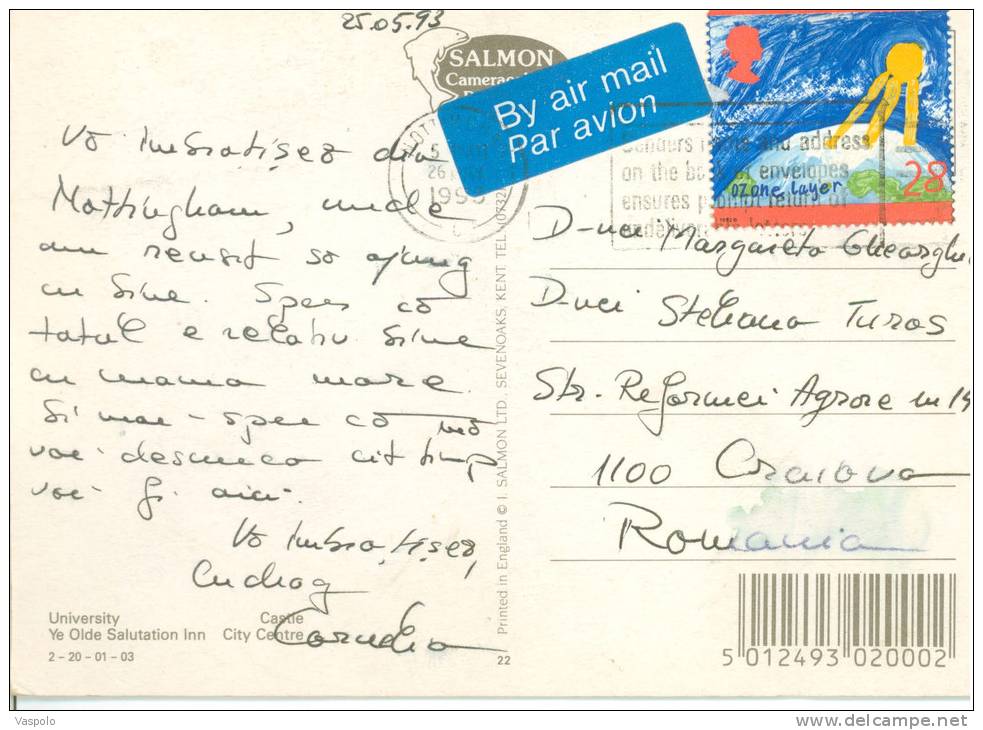 25.05.93
SALMON
By air mail
Par avion
ozone layer
28
Senders name and address
on the back of envelopes
ensures prompt return of
undelivered letters
1993
Vă îmbrățișez din
Nottingham, unde
am reușit să ajung
cu bine. Sper că
totul e relativ bine
cu mama mare.
Și mai - sper că mă
voi descurca cît timp
voi fi aici.
Vă îmbrățișez,
Cu drag
Cornelia
D-nei Margareta Gheorghe
D-nei Steliana Turos
Str. Reformei Agrare nr 15
1100 Craiova
Romania
University Castle
Ye Olde Salutation Inn City Centre
2-20-01-03
22
Printed in England © J. SALMON LTD., SEVENOAKS, KENT TEL (0732)
5 012493 020002
Vaspolo
http://www.delcampe.net